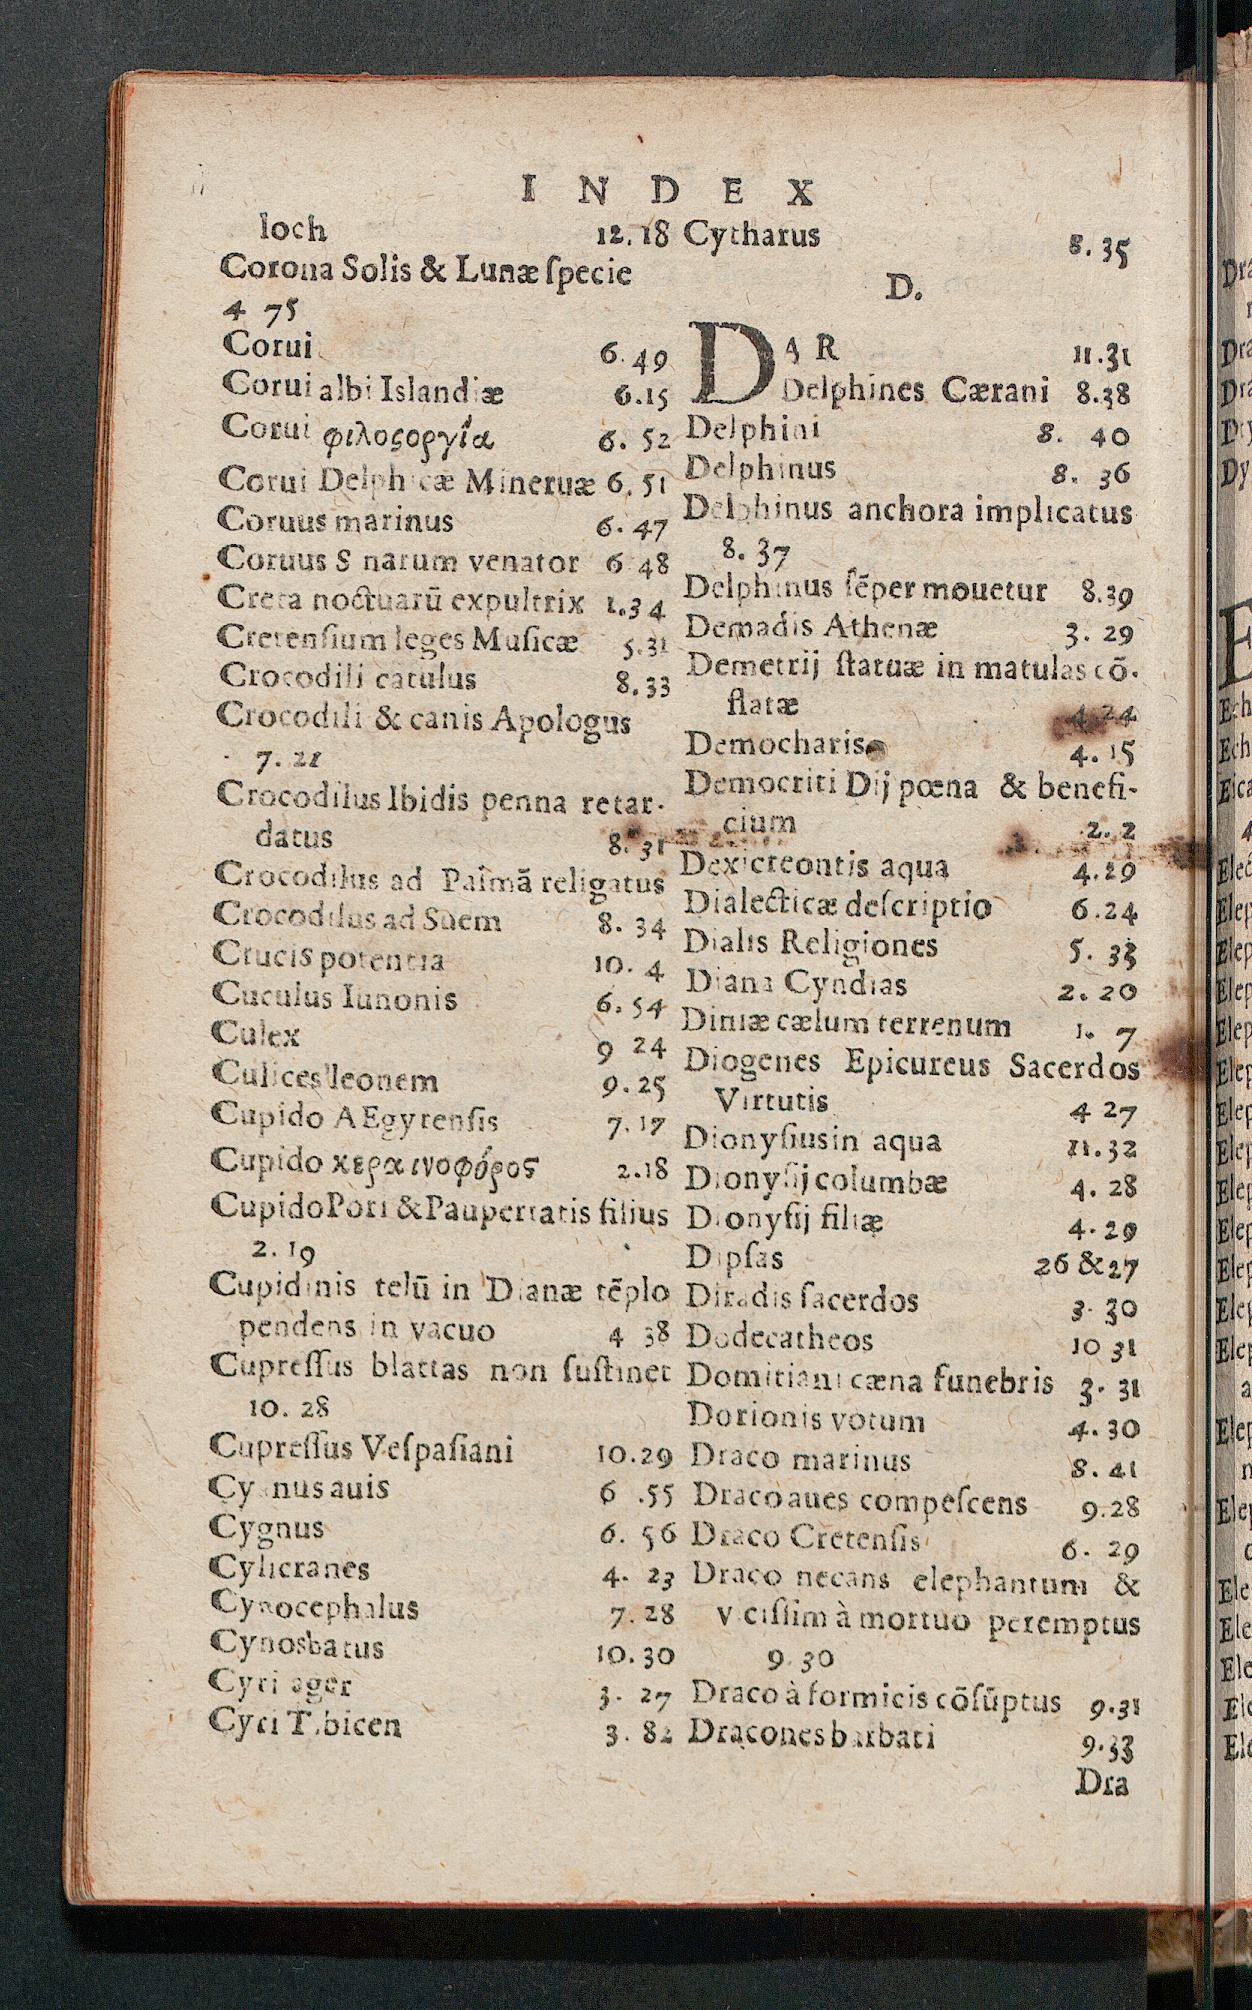 INDEX
loch 12.18
Corona Solis & Lunæ ſpecie
4 75
Corui 6.49
Corui albi Islandiæ 6.15
Corui φιλοςοργία 6. 52
Corui Delphicæ Mineruæ 6.51
Coruus marinus 6.47
Coruus S narum venator 6 48
Creta noctuarū expultrix 1.34
Cretenſium leges Muſicæ 5.31
Crocodili catulus 8.33
Crocodili & canis Apologus
7. 21
Crocodilus Ibidis penna retar-
datus 8. 31
Crocodilus ad Palmā religatus
Crocodilus ad Suem 8. 34
Crucis potentia 10. 4
Cuculus Iunonis 6.54
Culex 9 24
Culices leonem 9.25
Cupido AEgyrenſis 7.17
Cupido κεραινοφόρος 2.18
Cupido Pori & Paupertatis filius
2. 19
Cupidinis telū in Dianæ tēplo
pendens in vacuo 4 38
Cupreſſus blattas non ſuſtinet
10. 28
Cupreſſus Veſpaſiani 10.29
Cy nus auis 6 .55
Cygnus 6. 56
Cylicranes 4. 23
Cynocephalus 7. 28
Cynosbatus 10.30
Cyri ager 3. 27
Cyri T bicen 3. 82
Cytharus 8.35
D.
DAR 11.31
Delphines Cærani 8.38
Delphini 8. 40
Delphinus 8. 36
Delphinus anchora implicatus
8. 37
Delphinus ſēper mouetur 8.39
Demadis Athenæ 3. 29
Demetrij ſtatuæ in matulas cō-
flatæ 4 24
Democharis 4. 15
Democriti Dij pœna & benefi-
cium 2. 2
Dexicreontis aqua 4.29
Dialecticæ deſcriptio 6.24
Dialis Religiones 5. 33
Diana Cyndias 2. 20
Diniæ cælum terrenum 1. 7
Diogenes Epicureus Sacerdos
Virtutis 4 27
Dionyſius in aqua 11.32
Dionyſij columbæ 4. 28
Dionyſij filiæ 4.29
Dipſas 26 & 27
Diradis ſacerdos 3. 30
Dodecatheos 10 31
Domitiani cæna funebris 3. 31
Dorionis votum 4.30
Draco marinus 8. 41
Draco aues compeſcens 9.28
Draco Cretenſis 6. 29
Draco necans elephantum &
viciſſim à mortuo peremptus
9.30
Draco à formicis cōſūptus 9.31
Dracones barbati 9.33
Dra